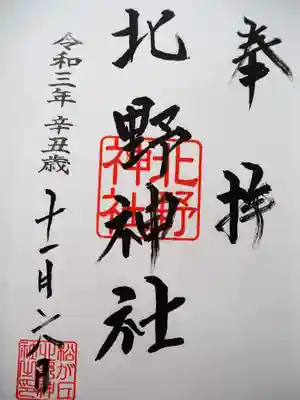 奉拝
北野神社
北野
神社
令和三年 辛丑歳
十一月六日
松が丘
北野神
社之印